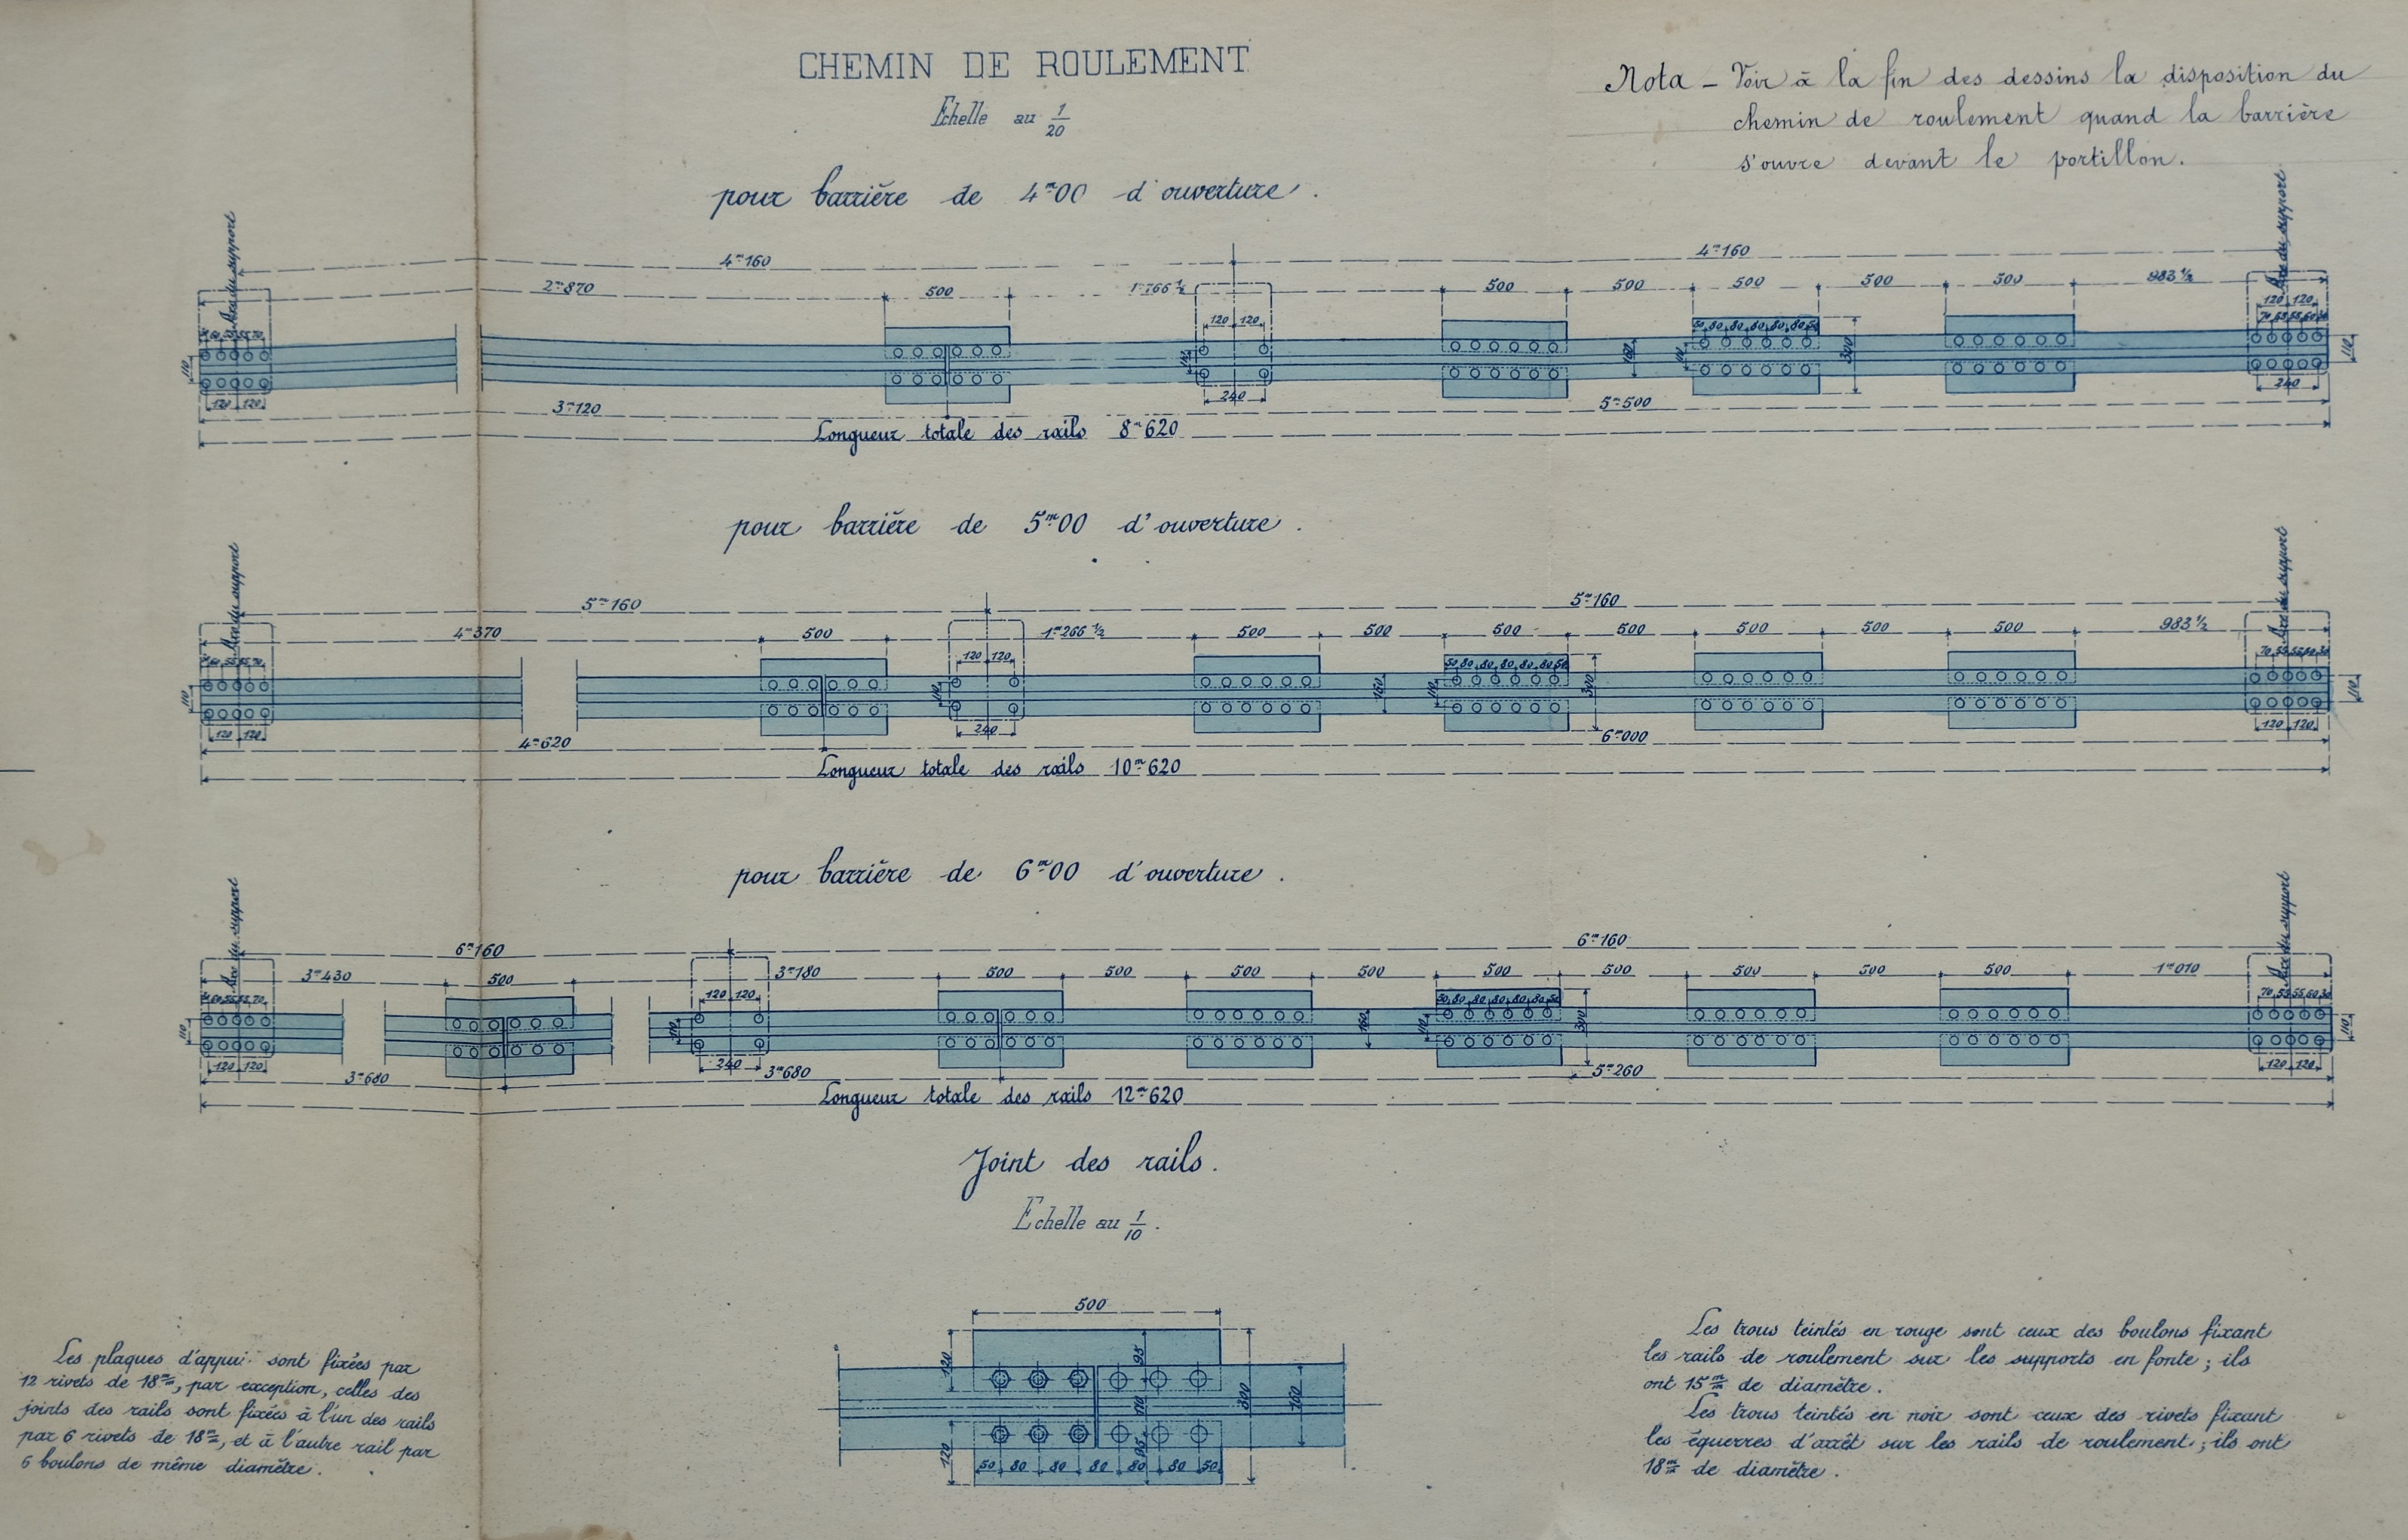 CHEMIN DE ROULEMENT
Echelle au 1/20
Nota - Voir à la fin des dessins la disposition du
chemin de roulement quand la barrière
s'ouvre devant le portillon.
pour barrière de 4m00 d'ouverture.
Axe du support
Axe du support
4m160
4m160
2m870 500 1m766 ½ 500 500 500 500 500 983 ½
120 120
120 120
60 55 55 70
50 80 80 80 80 80 50
70 55 55 60 30
110 110 160 110 300 110
120 120
240
240
3m120
5m500
Longueur totale des rails 8m620
pour barrière de 5m00 d'ouverture.
Axe du support
Axe du support
5m160
5m160
4m370 500 1m266 ½ 500 500 500 500 500 500 500 983 ½
120 120
60 55 55 70
50 80 80 80 80 80 50
70 55 55 60 30
110 110 160 110 300 110
120 120
240
120 120
4m620
6m000
Longueur totale des rails 10m620
pour barrière de 6m00 d'ouverture.
Axe du support
Axe du support
6m160
6m160
3m430 500 3m180 500 500 500 500 500 500 500 500 500 1m010
120 120
60 55 55 70
50 80 80 80 80 80 50
70 55 55 60 30
110 110 160 110 300 110
120 120
240
120 120
3m680
3m680
5m260
Longueur totale des rails 12m620
Joint des rails.
Echelle au 1/10.
500
120 95
110 300 160
120 95
50 80 80 80 80 80 50
Les plaques d'appui sont fixées par
12 rivets de 18m/m, par exception, celles des
joints des rails sont fixées à l'un des rails
par 6 rivets de 18m/m, et à l'autre rail par
6 boulons de même diamètre.
Les trous teintés en rouge sont ceux des boulons fixant
les rails de roulement sur les supports en fonte; ils
ont 15m/m de diamètre.
Les trous teintés en noir sont ceux des rivets fixant
les équerres d'arrêt sur les rails de roulement; ils ont
18m/m de diamètre.